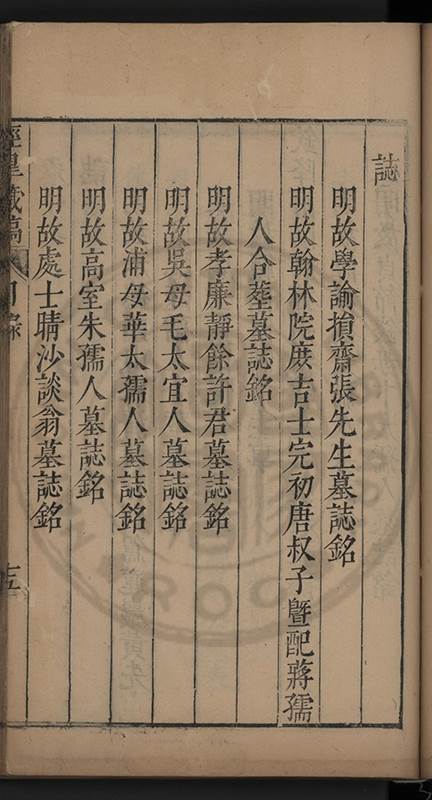 誌
明故學諭損齋張先生墓誌銘
明故翰林院庻吉士完初唐叔子曁配蔣孺
人合塟墓誌銘
明故孝廉靜餘許君墓誌銘
明故吳母毛太宜人墓誌銘
明故浦母華太孺人墓誌銘
明故高室朱孺人墓誌銘
明故處士晴沙談翁墓誌銘
經皐藏稿 目錄